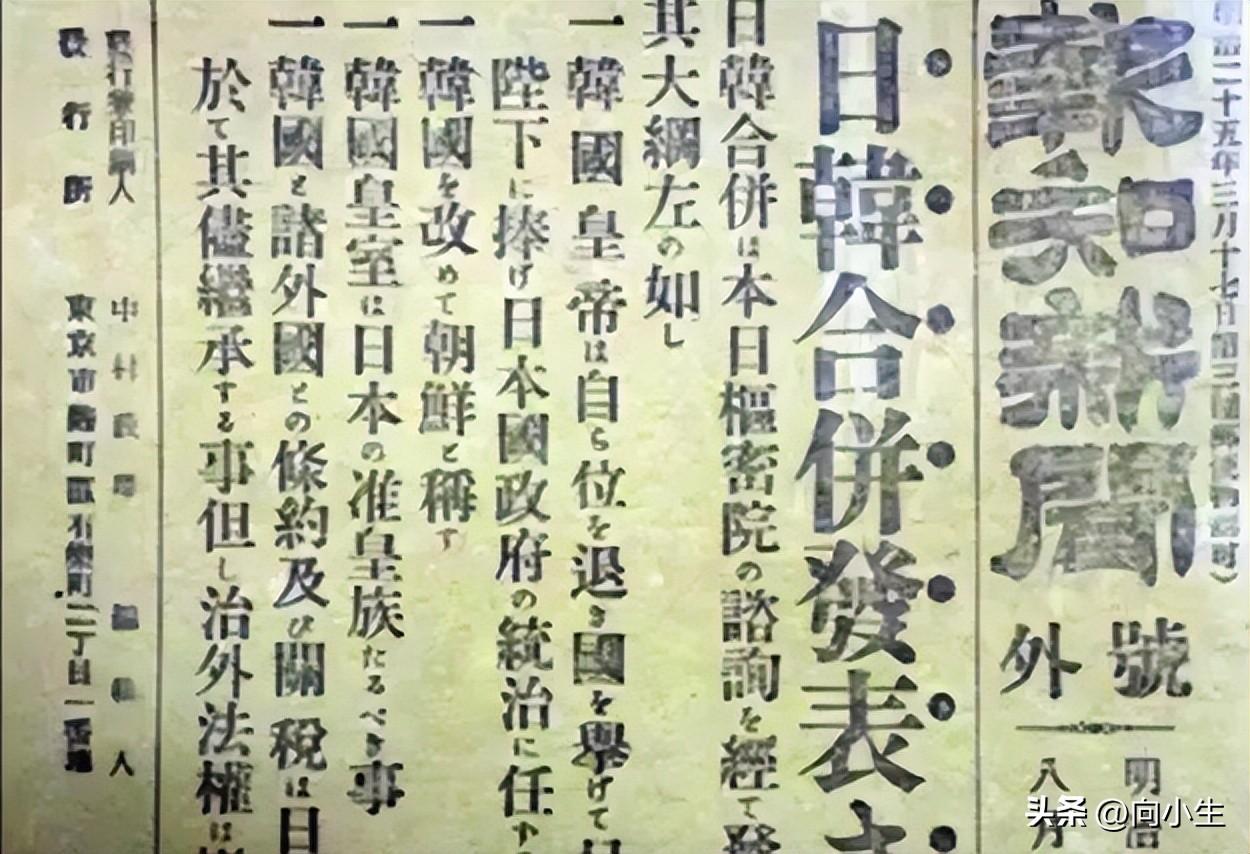 二十五年三月十七日第三種郵便物認可)
報知新聞
號外
明治
八月
日韓合併發表
日韓合併は本日樞密院の諮詢を經て發
其大綱左の如し
一韓國皇帝は自ら位を退き國を擧げて
陛下に捧げ日本國政府の統治に任か
一韓國を改めて朝鮮と稱す
一韓國皇室は日本の准皇族たるべき事
一韓國と諸外國との條約及び關税は日
於て其儘繼承する事但し治外法權は
發行兼印刷人 中村 編輯人
發行所 東京市麴町區有樂町二丁目一番地
头条 @向小生